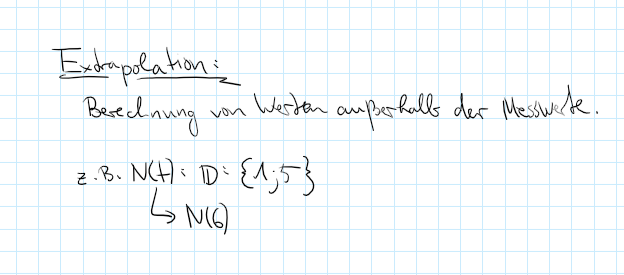 Extrapolation:
Berechnung von Werten außerhalb der Messwerte.
z.B. N(t): D: {1;5}
↳ N(6)